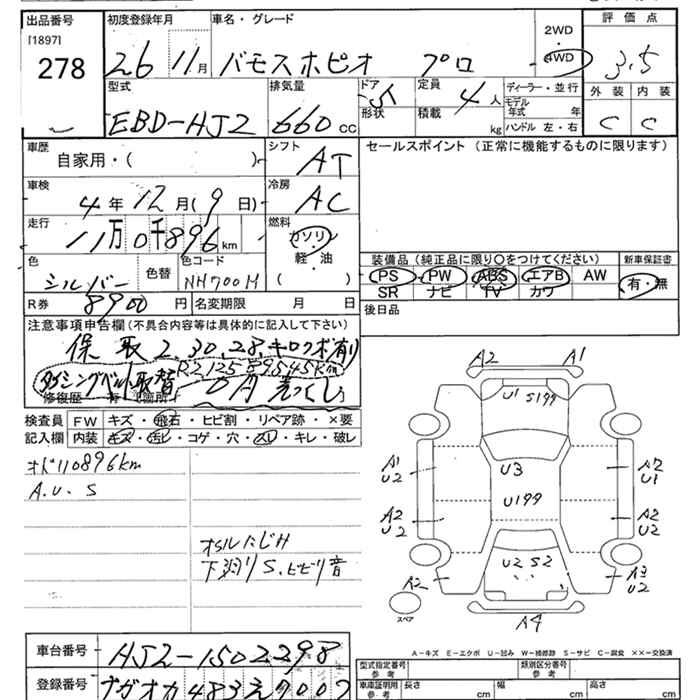 出品番号 初度登録年月 車名・グレード 2WD 評価点
[1897] 278 26 11月 バモスホビオ プロ 4WD 3.5
型式 排気量 ドア 定員 ディーラー・並行 外装 内装
EBD-HJ2 660cc 5 4人 モデル年式 年 C C
形状 積載 kg ハンドル 左・右
車歴 シフト セールスポイント (正常に機能するものに限ります)
自家用・( ) AT
車検 冷房
4年12月(9日) AC
走行 燃料
11万0千896km ガソリン・軽・油
装備品 (純正品に限り○をつけてください) 新車保証書
色 色替 色コード PS PW ABS エアB AW 有・無
シルバー NH700M ( ) SR ナビ TV カワ
R券 8900円 名変期限 月 日 後日品
注意事項申告欄(不具合内容等は具体的に記入して下さい)
保 取 2.30.28.キロク ホ 有リ
タイミングベルト取替 R2.12.5 89545km
修復歴 有(箇所 )
検査員 FW キズ・飛石・ヒビ割・リペア跡・×要
記入欄 内装 キズ・汚レ・コゲ・穴・スレ・キレ・破レ
オド110896km
A.U.S
下廻りS.ビビリ音
A2 A1
U1 S199
U3
U199
U2 S2
A1 U2
A2 U2
A2
A2 U1
A2 U2
U2
A4
スペア
A-キズ E-エクボ U-凹み W-補修跡 S-サビ C-腐食 ××-交換済
車台番号 HJ2-1502298
登録番号 ナガオカ 483え9002
型式指定番号 参考 類別区分番号 参考
車庫証明用 参考 長さ cm 幅 cm 高さ cm